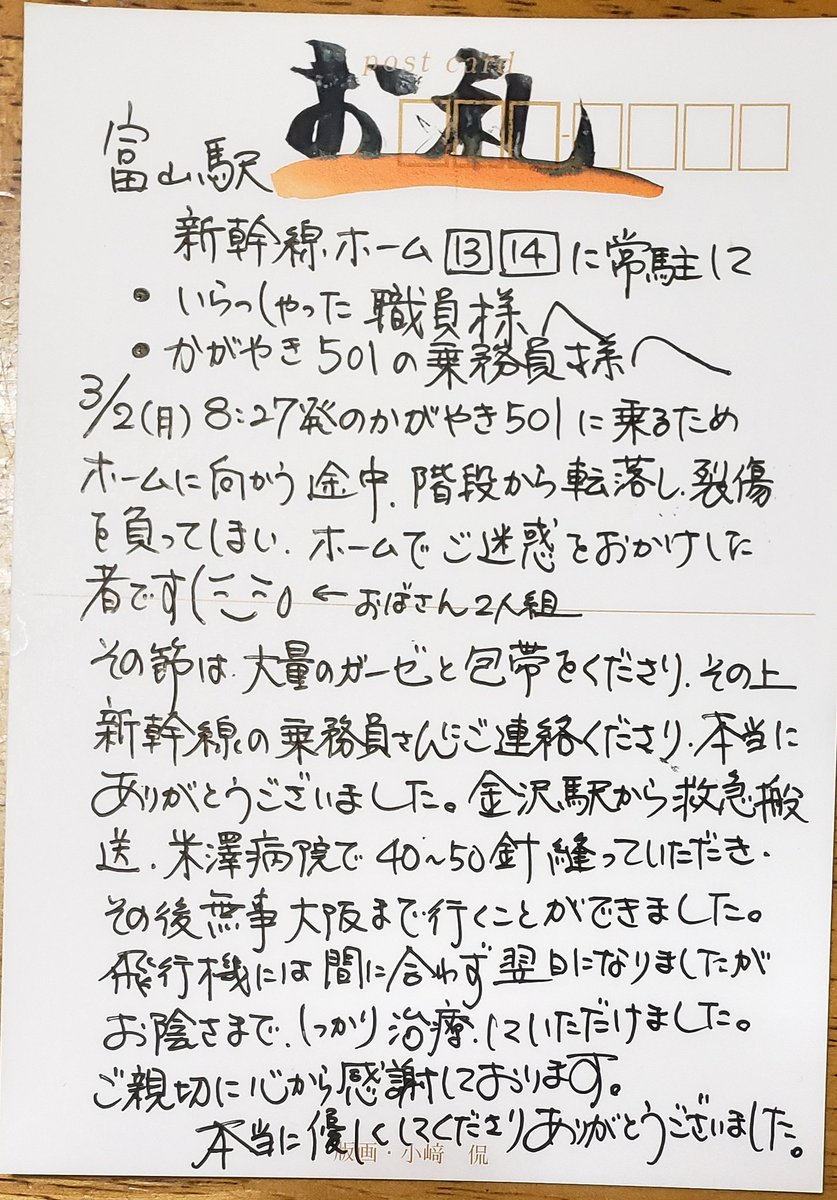 post card
お礼
富山駅
新幹線ホーム 13 14 に常駐して
・いらっしゃった職員様へ
・かがやき501の乗務員様へ
3/2(月) 8:27発のかがやき501に乗るため
ホームに向かう途中、階段から転落し、裂傷
を負ってしまい、ホームでご迷惑をおかけした
者です(ミ_ミ)。←おばさん2人組
その節は、大量のガーゼと包帯をくださり、その上
新幹線の乗務員さんにご連絡くださり、本当に
ありがとうございました。金沢駅から救急搬
送、米澤病院で40~50針縫っていただき、
その後無事大阪まで行くことができました。
飛行機には間に合わず翌日になりましたが
お陰さまで、しっかり治療、していただけました。
ご親切に心から感謝しております。
本当に優しくしてくださりありがとうございました。
版画・小﨑 侃